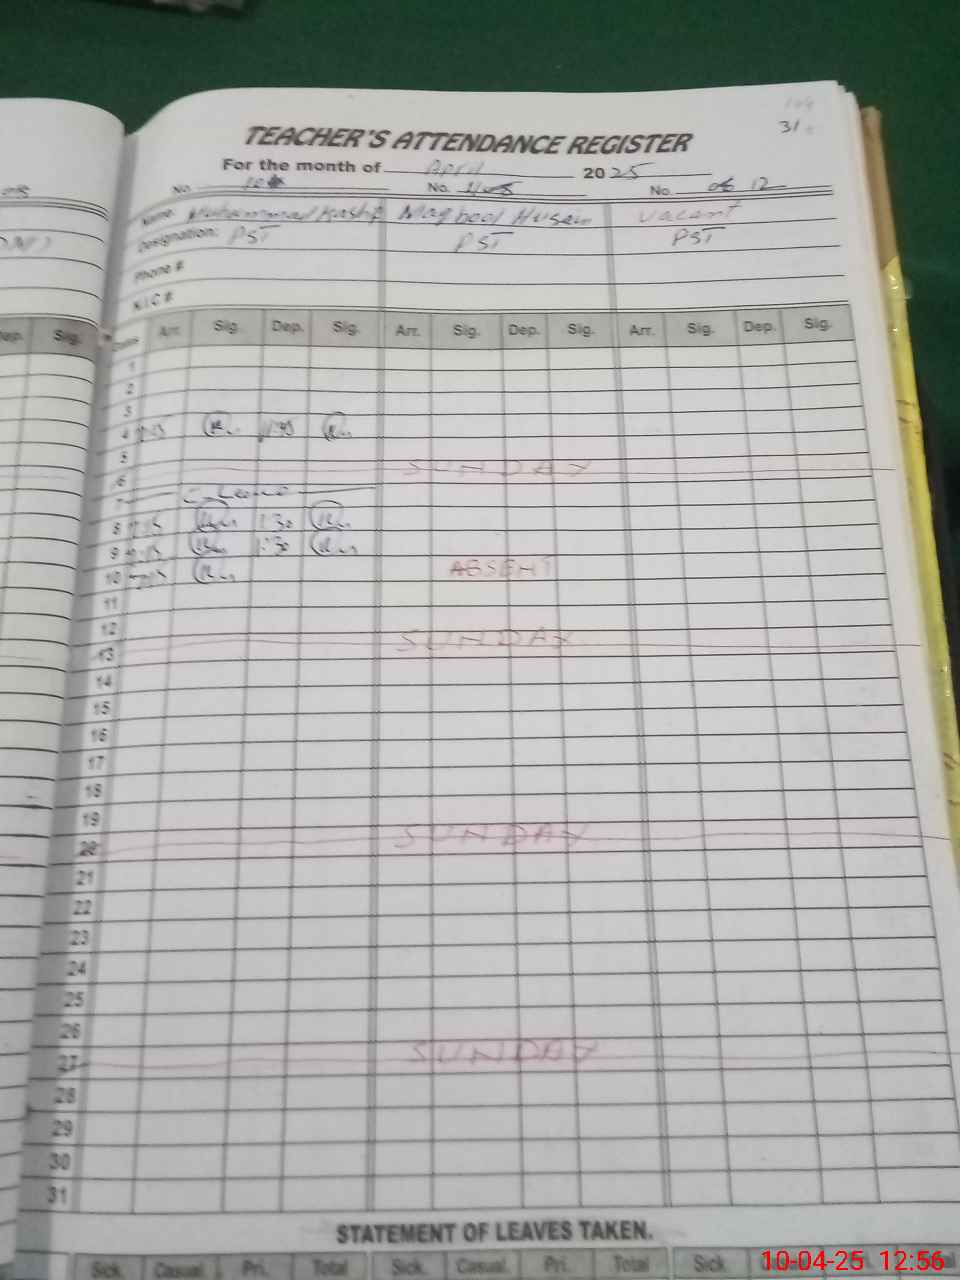 31
TEACHER'S ATTENDANCE REGISTER
For the month of April 2025
No. No. No. of 12
Name: Muhammad Kashif Maqbool Husain Vacant
Designation: PST PST PST
Phone #
N.I.C #
Dep. Sig. Dates Arr. Sig. Dep. Sig. Arr. Sig. Dep. Sig. Arr. Sig. Dep. Sig.
1
2
3
4 7:15 1:45
5
6 SUNDAY
7 C_Leave
8 7:15 1:30
9 7:15 1:30
10 7:15 ABSENT
11
12
13 SUNDAY
14
15
16
17
18
19
20 SUNDAY
21
22
23
24
25
26
27 SUNDAY
28
29
30
31
STATEMENT OF LEAVES TAKEN.
Sick. Casual. Pri. Total Sick. Casual. Pri. Total Sick.
10-04-25 12:56